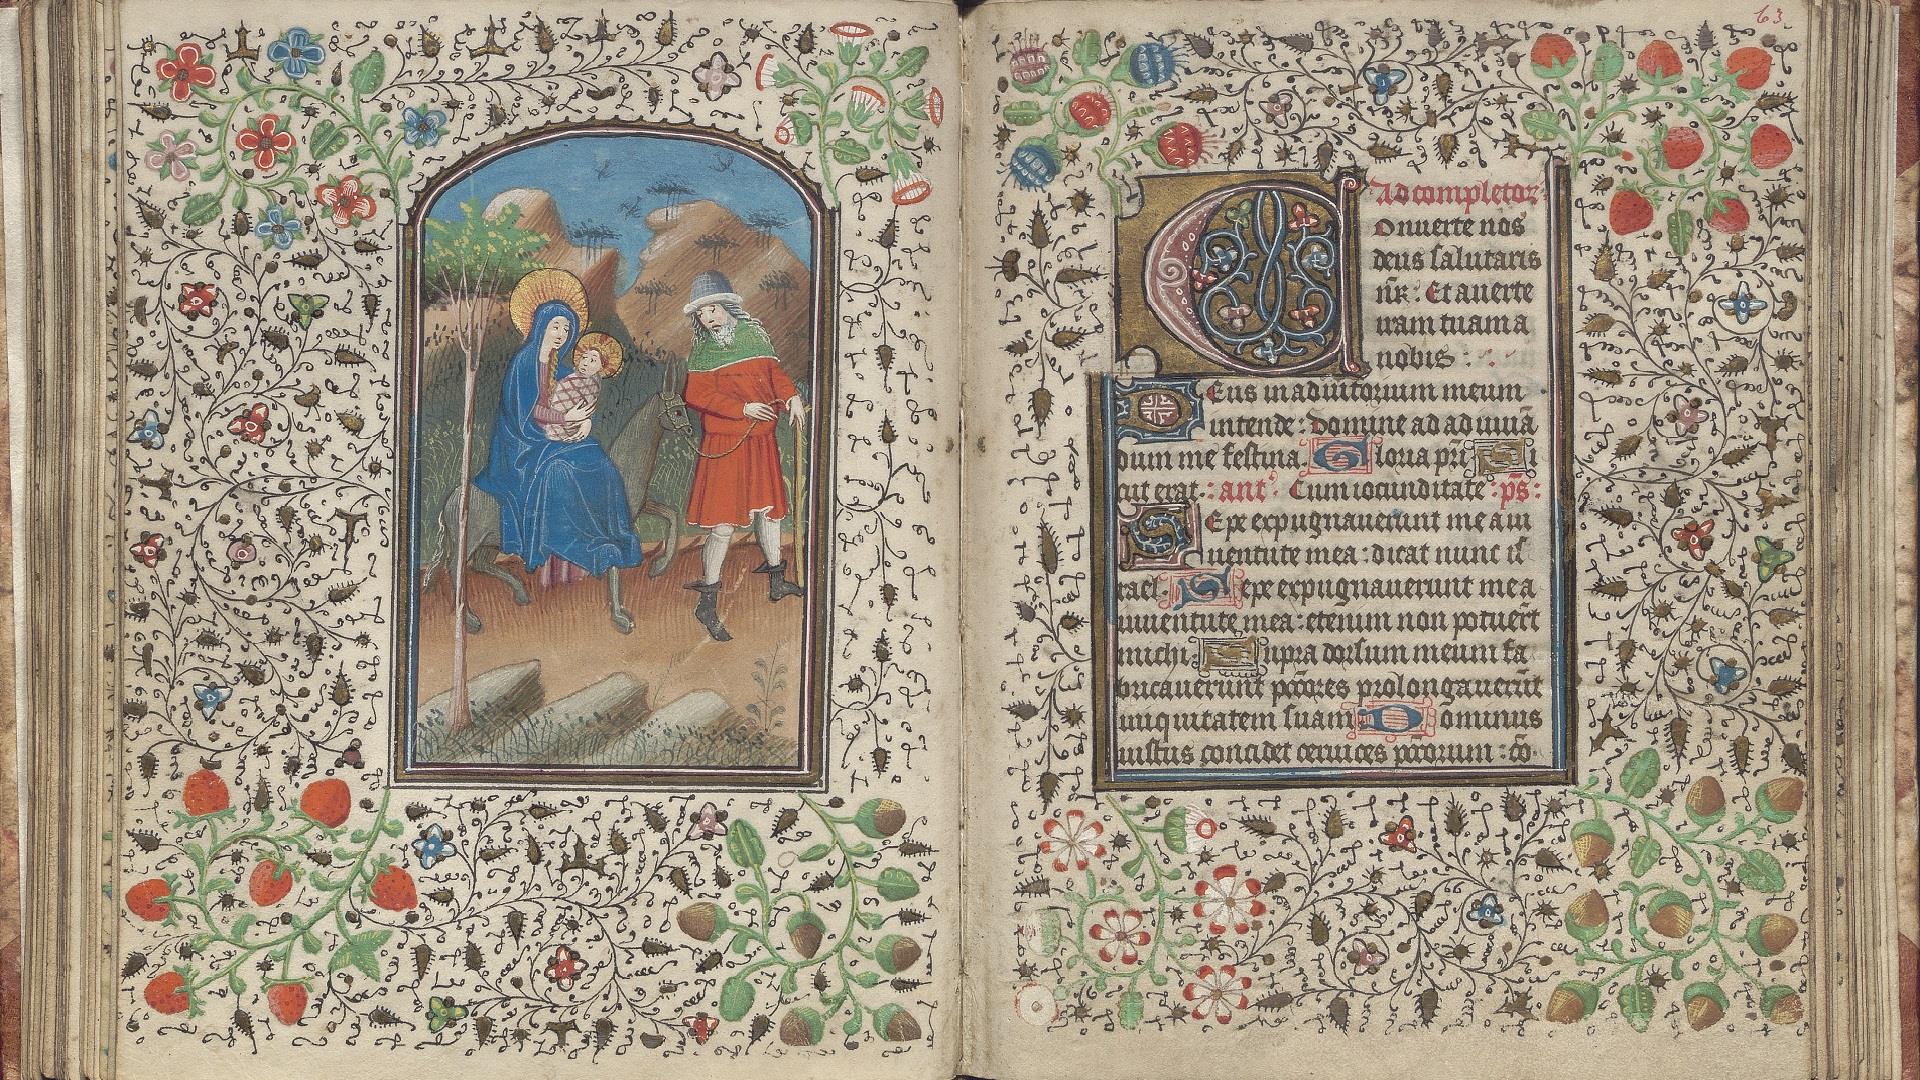 63
Ad completor
Onuerte nos
deus salutaris
nr̄: Et auerte
iram tuam a
nobis:
Eus in adiutorium meum
intende: Domine ad adiuuā
dum me festina. Gloria pri Si
cut erat: ant' Cum iocunditate: ps̄:
Sepe expugnauerunt me a iu
uentute mea: dicat nunc is
rael. Sepe expugnauerunt me a
iuuentute mea: etenim non potuert̄
michi. Supra dorsum meum fa
bricauerunt pctōres prolongauerūt
iniquitatem suam Dominus
iustus concidet ceruices pctōrum: cō